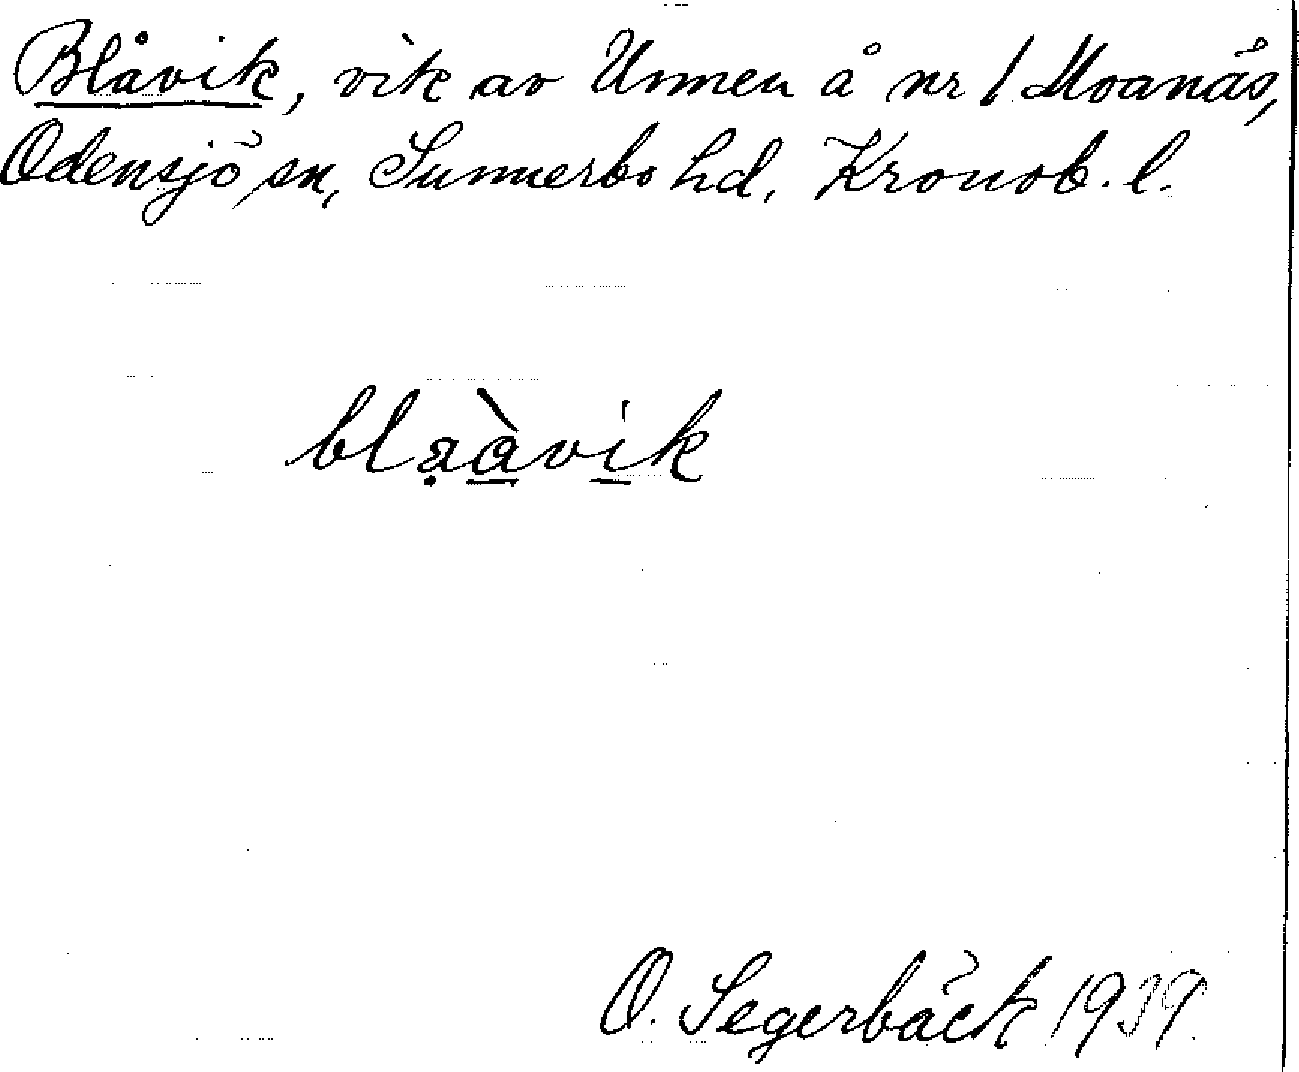 Blåvik, vik av Unnen å nr 1 Moanäs,
Odensjö sn, Sunnerbo hd, Kronob. l.
blaàvik
O. Segerbäck 1939.